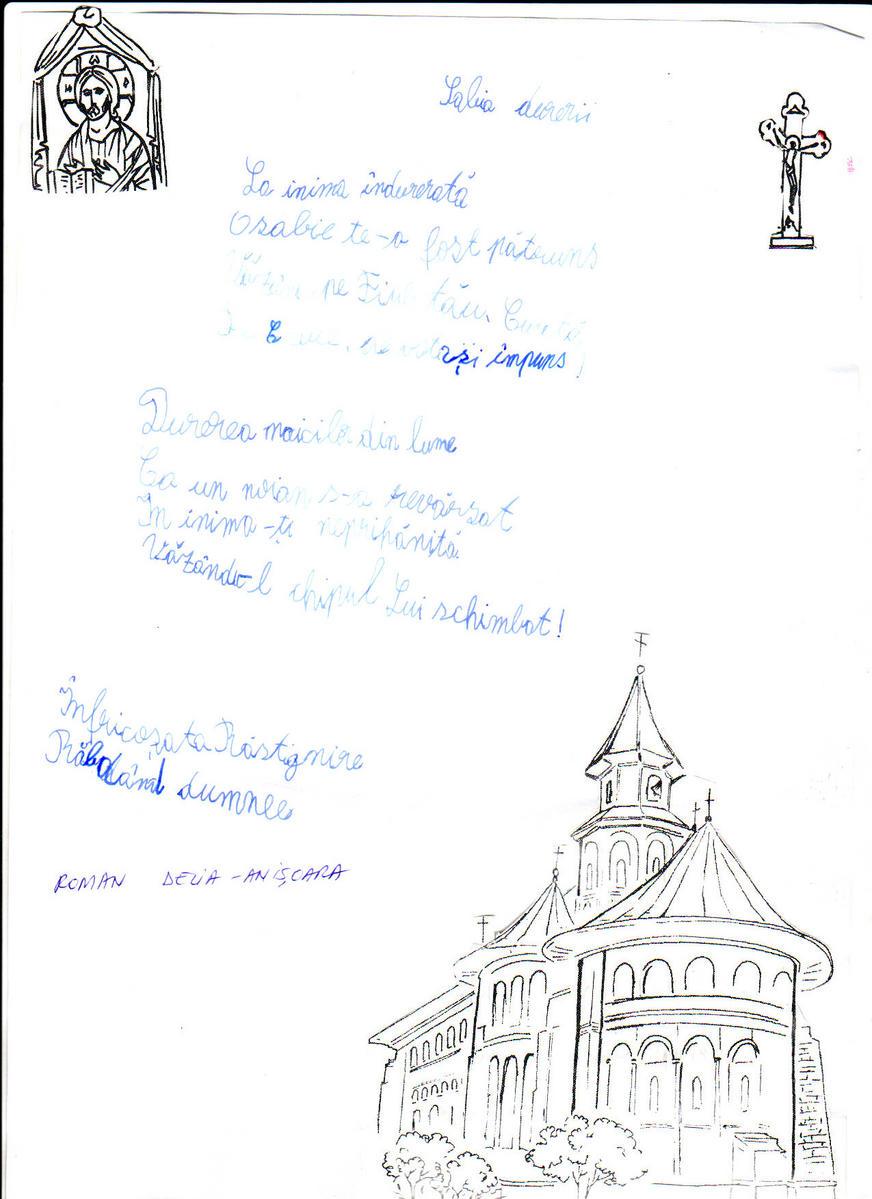 Sabia durerii
La inima îndurerată
O sabie te-a fost pătruns
pe Fiul tău
și împuns
Durerea maicilor din lume
Ca un noian s-a revărsat
În inima-ți neprihănită
Văzându-l chipul Lui schimbat!
Înfricoșata Răstignire
Răbdând dumnee
ROMAN DELIA-ANIȘOARA